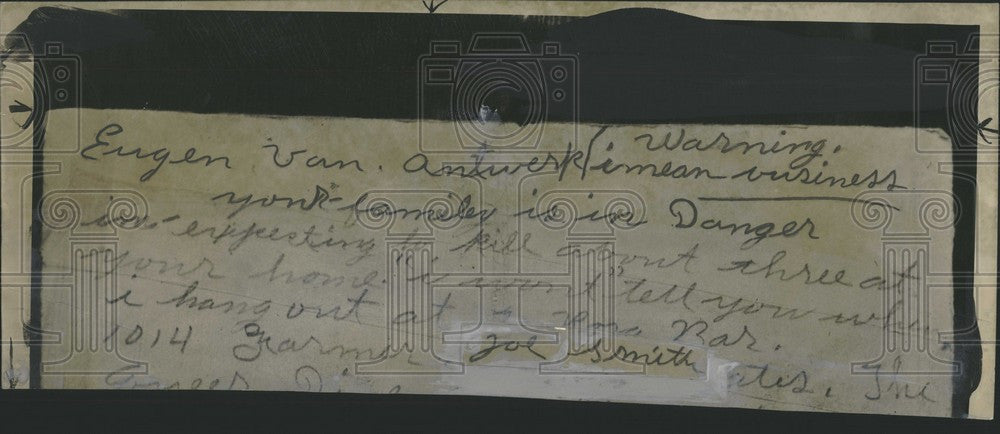 Warning.
Eugen Van. Antwerk imean business
your family is in Danger
im expecting to kill about three at
your home. i won't tell you why
i hang out at a Bar.
1014 Joe Smith The